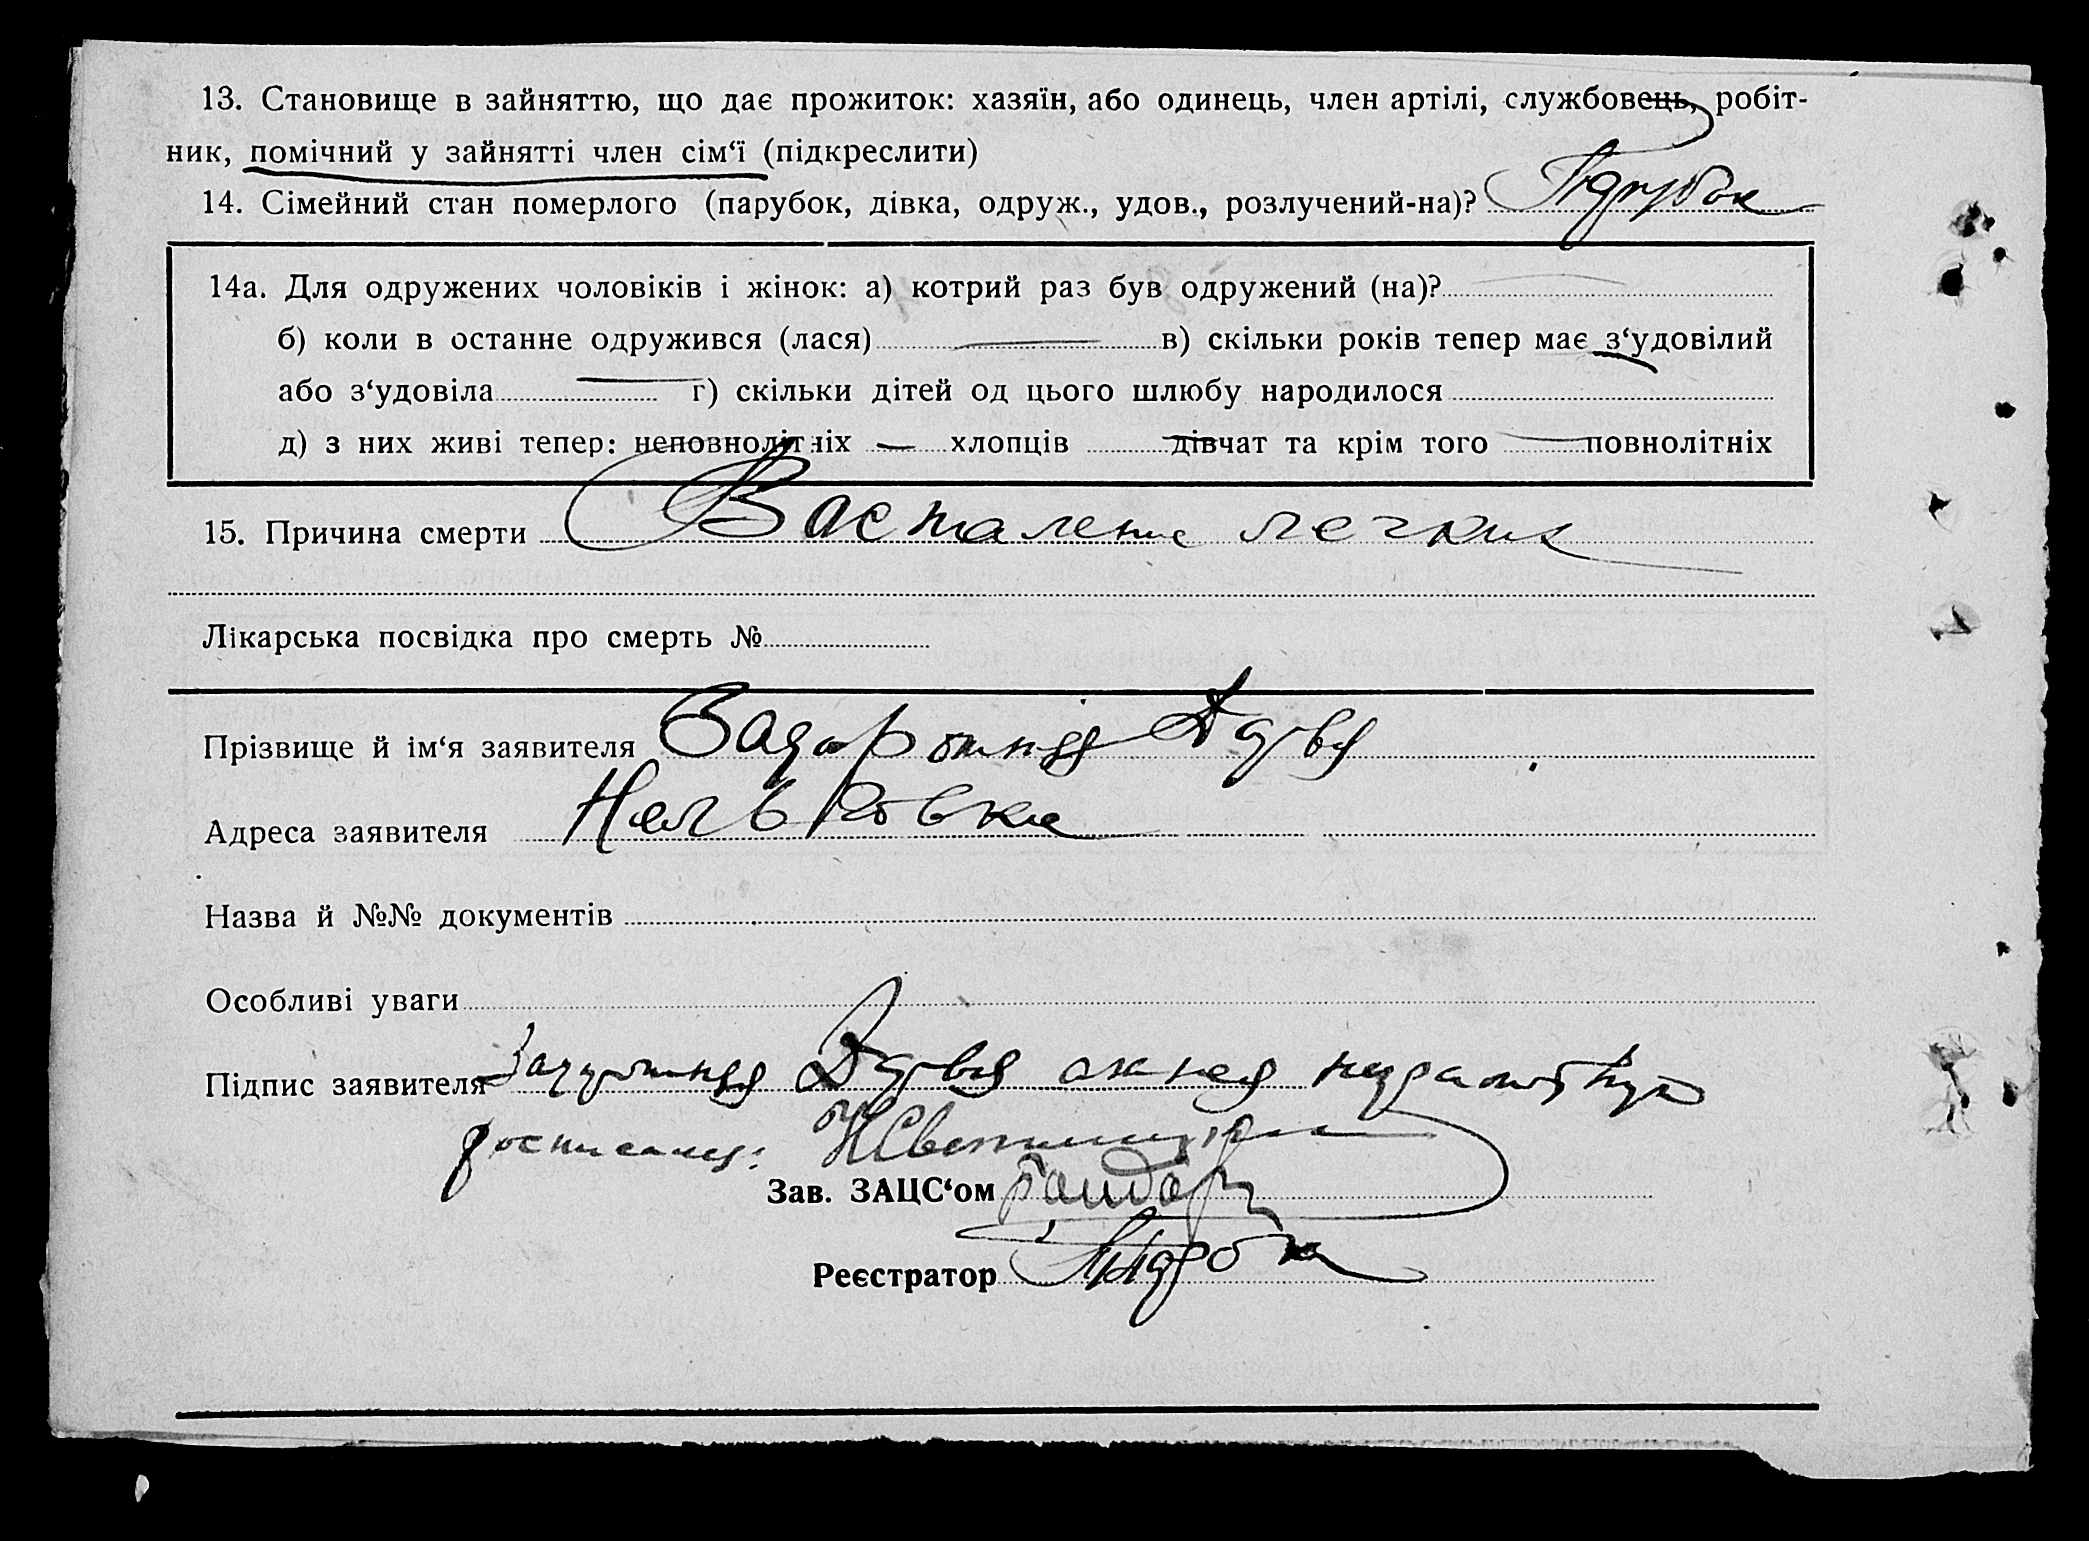 13. Становище в зайняттю, що дає прожиток: хазяїн, або одинець, член артілі, службовець, робіт-
ник, помічний у зайнятті член сім‘ї (підкреслити)
14. Сімейний стан померлого (парубок, дівка, одруж., удов., розлучений-на)? Парубок
14а. Для одружених чоловіків і жінок: а) котрий раз був одружений (на)?
б) коли в останне одружився (лася) в) скільки років тепер має з‘удовілий
або з‘удовіла г) скільки дітей од цього шлюбу народилося
д) з них живі тепер: неповнолітніх хлопців дівчат та крім того повнолітніх
15. Причина смерти Воспаление легких
Лікарська посвідка про смерть №
Прізвище й ім‘я заявителя
Адреса заявителя
Назва й №№ документів
Особливі уваги
Підпис заявителя
Зав. ЗАЦС‘ом
Реєстратор